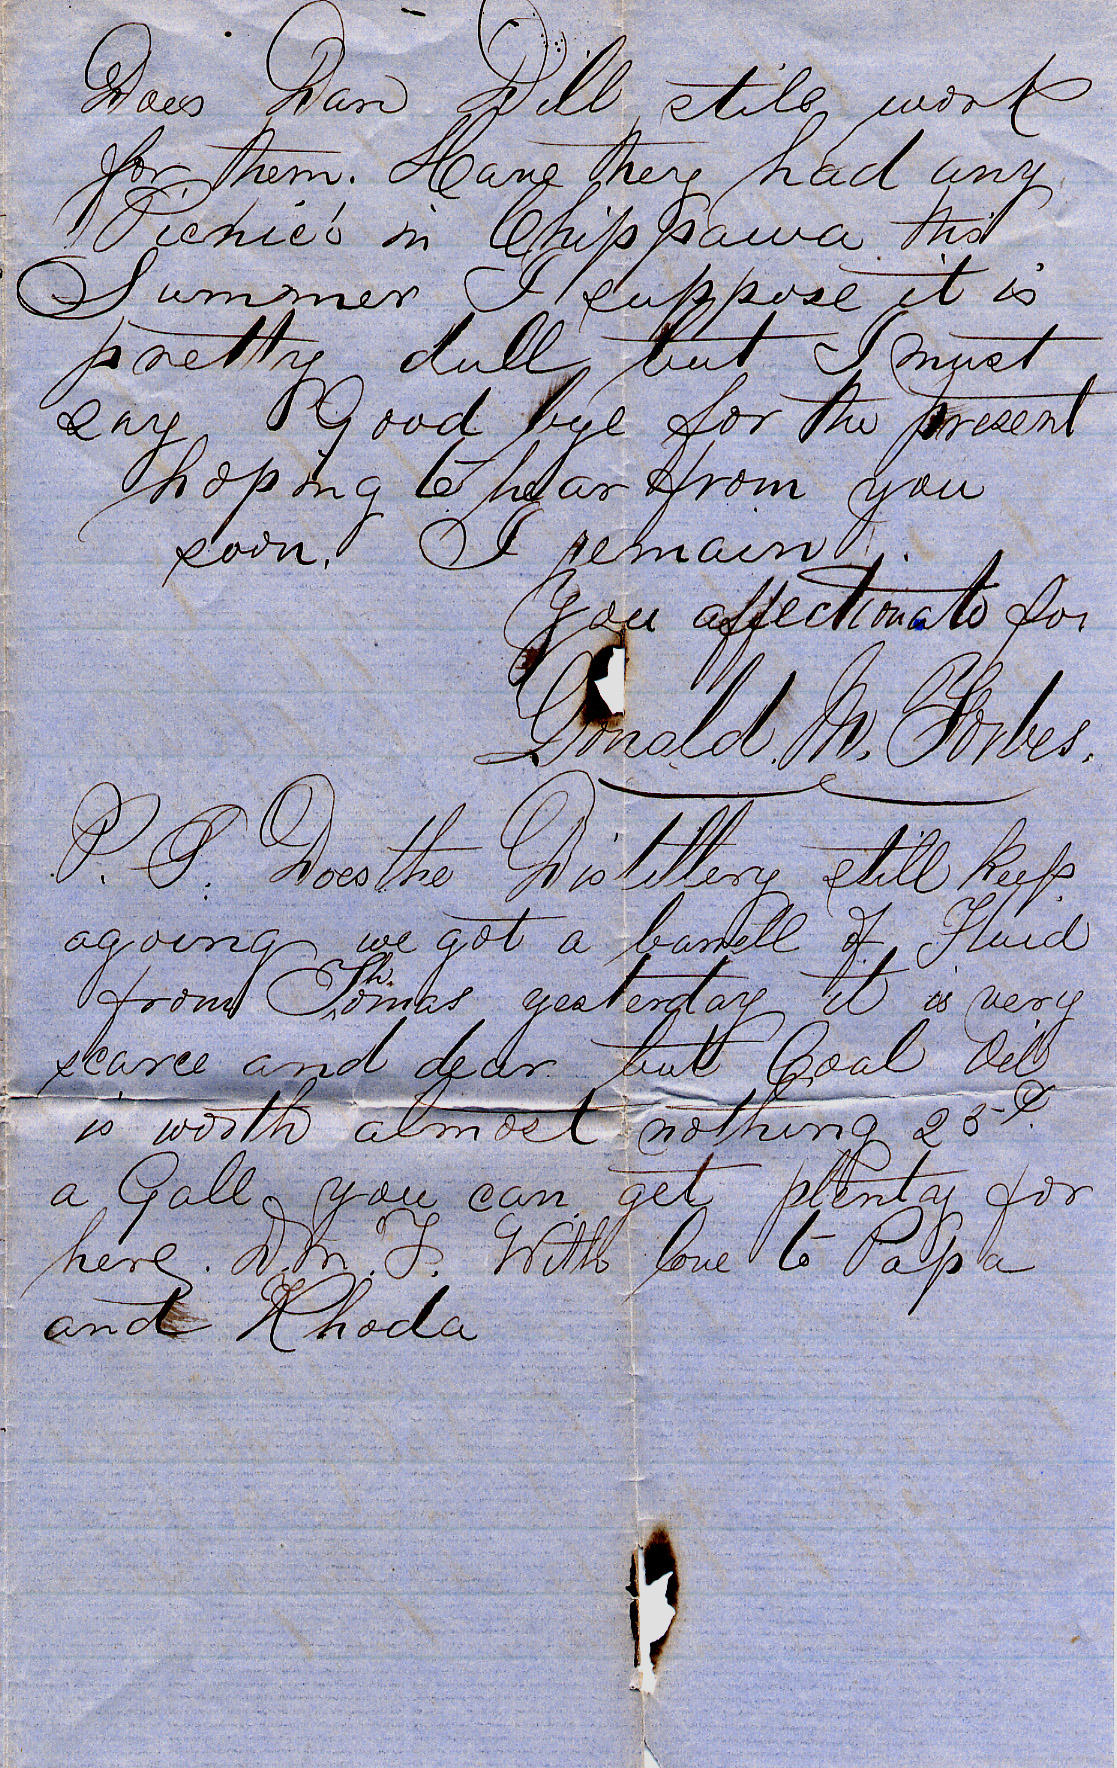 Does Dan Dill still work
for them. Have they had any
Picnic's in Chippawa this
Summer I suppose it is
pretty dull but I must
say Good bye for the present
hoping to hear from you
soon. I remain
You affectionate for
Donald. M. Forbes.
P. S. Does the Distillery still keep
agoing we got a barrell of Fluid
from Thomas yesterday it is very
scarce and dear but Coal Oil
is worth almost nothing 25¢.
a Gall you can get plenty for
here. D. M. F. With love to Papa
and Rhoda